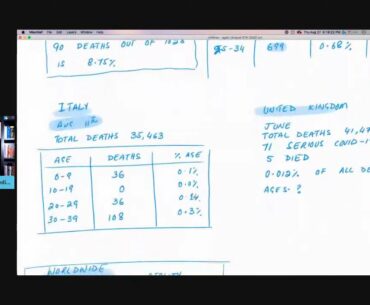 90 DEATHS OUT OF 1028
IS 8.75%
25-34 699 0.68%
ITALY
AUG 11th
TOTAL DEATHS 35,463
AGE DEATHS % AGE
0-9 36 0.1%
10-19 0 0.0%
20-29 36 0.1%
30-39 108 0.3%
UNITED KINGDOM
JUNE
TOTAL DEATHS 41,47
71 SERIOUS COVID-1
5 DIED
0.012% OF ALL DE
AGES ?
WORLDWIDE